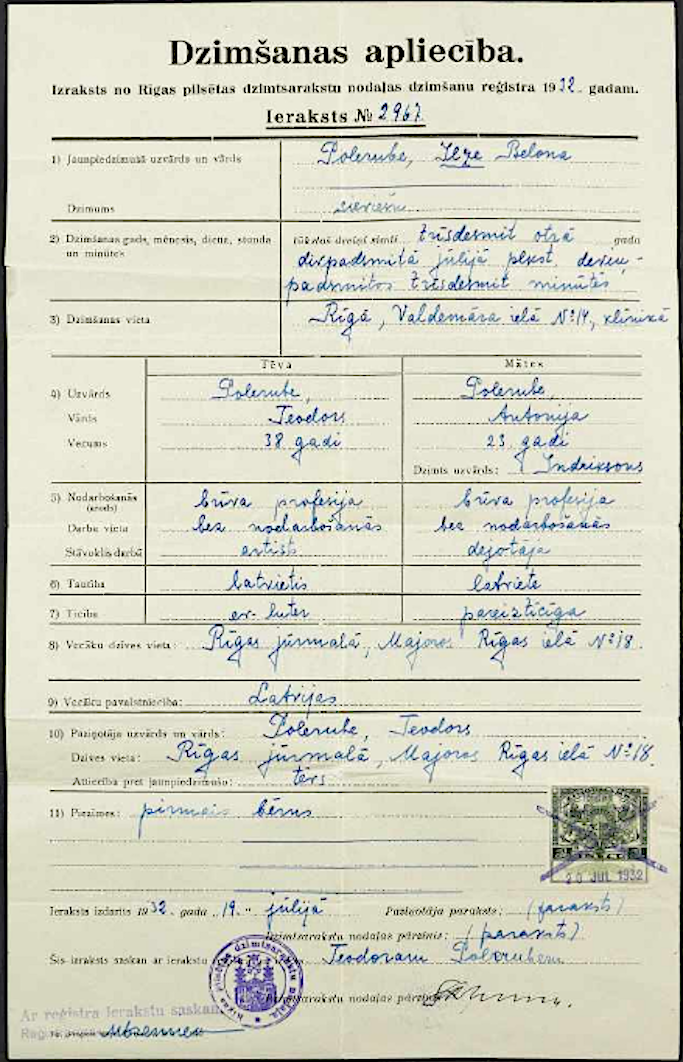 Dzimšanas apliecība.
Izraksts no Rīgas pilsētas dzimtsarakstu nodaļas dzimšanu reģistra 1932. gadam.
Ieraksts № 2967.
1) Jaunpiedzimušā uzvārds un vārds Polerube, Ilze Belona
Dzimums sieviešu
2) Dzimšanas gads, mēnesis, diena, stunda tūkstoš deviņi simti trīsdesmit otrā gada
un minūtes divpadsmitā jūlijā plkst. deviņ-
padsmitos trīsdesmit minūtēs
3) Dzimšanas vieta Rīgā, Valdemāra ielā № 14, klīnikā
Tēva Mātes
4) Uzvārds Polerube, Polerube,
Vārds Teodors Antonija
Vecums 38 gadi 23 gadi
Dzimts uzvārds: Indriksons
5) Nodarbošanās brīva profesija brīva profesija
(arods)
Darba vieta bez nodarbošanās bez nodarbošanās
Stāvoklis darbā artists dejotāja
6) Tautība latvietis latviete
7) Ticība ev.-luter pareizticīga
8) Vecāku dzīves vieta: Rīgas jūrmalā, Majoros Rīgas ielā № 18.
9) Vecāku pavalstniecība: Latvijas
10) Paziņotāja uzvārds un vārds: Polerube, Teodors
Dzīves vieta: Rīgas jūrmalā, Majoros Rīgas ielā № 18.
Attiecība pret jaunpiedzimušo: tēvs
11) Piezīmes: pirmais bērns
20 JUL 1932
Ieraksts izdarīts 1932. gada „19.“ jūlijā Paziņotāja paraksts: (paraksts)
Dzimtsarakstu nodaļas pārzinis: (paraksts)
Šis izraksts saskan ar ierakstu Teodoram Polerubem
Dzimtsarakstu nodaļas pārzinis
Ar reģistra ierakstu saskan